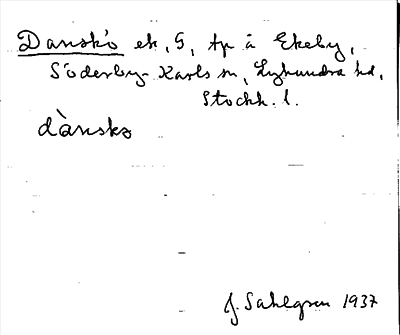 Danskö ek, S, tp å Ekeby,
Söderby-Karls sn, Lyhundra hd,
Stockh. l.
dànskö
J. Sahlgren 1937